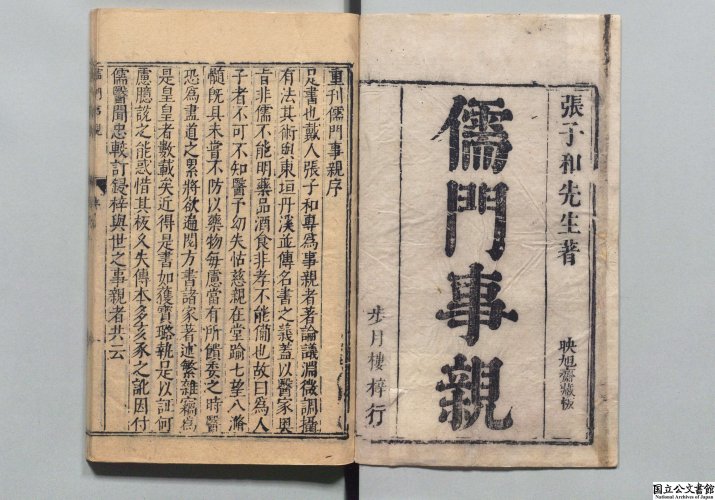 張子和先生著
儒門事親
映旭齋藏板
步月樓梓行
重刊儒門事親序
是書也戴人張子和專爲事親者著論議淵微調攝
有法其術與東垣丹溪並傳名書之義蓋以醫家奧
旨非儒不能明藥品酒食非孝不能備也故曰爲人
子者不可不知醫予幼失怙慈親在堂踰七望八滫
髓既具未嘗不防以藥物每慮當有所饋委之時醫
恐爲盡道之累將欲遍閱方書諸家著述繁雜竊爲
是皇皇者數載矣近得是書如獲寶璐執是以証何
慮臆說之能惑惜其板久失傳本多亥豕之訛因付
儒醫聞忠較訂鋟梓與世之事親者共云
儒門事親
序
国立公文書館
National Archives of Japan